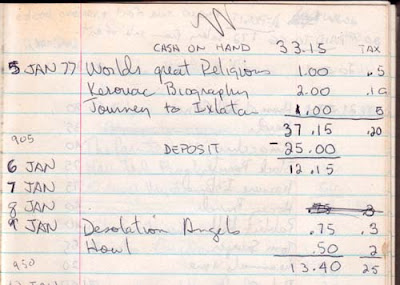 CASH ON HAND 33.15 TAX
5 JAN 77 Worlds great Religions 1.00 .5
Kerouac Biography 2.00 .10
Journey to Ixlatan 1.00 5
37.15 .20
905 DEPOSIT - 25.00
6 JAN 12.15
7 JAN
8 JAN .75 3
9 JAN Desolation Angels .75 .3
Howl .50 2
950 13.40 25
JAN